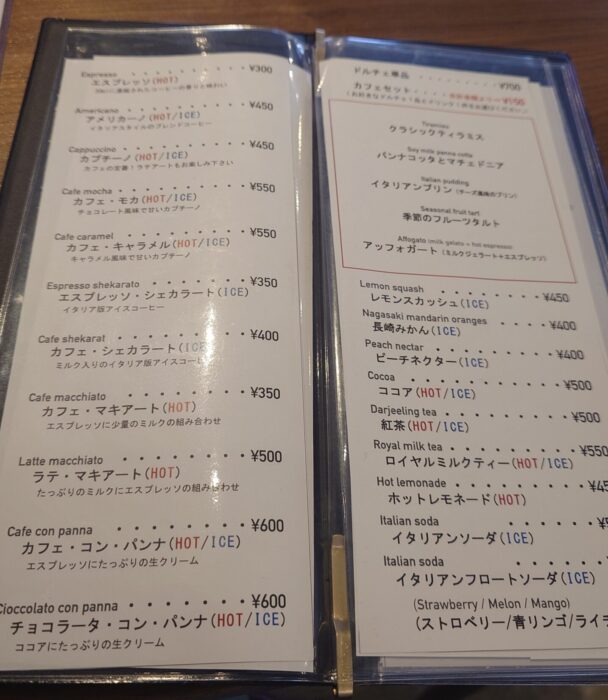 Espresso ・・・・・・・・・・・ ¥300
エスプレッソ(HOT)
Americano ・・・・・・・・・・ ¥450
アメリカーノ(HOT/ICE)
イタリアスタイルのブレンドコーヒー
Cappuccino ・・・・・・・・・・ ¥450
カプチーノ(HOT/ICE)
カフェの定番！ラテアートもお楽しみ下さい
Cafe mocha ・・・・・・・・・・ ¥550
カフェ・モカ(HOT/ICE)
チョコレート風味で甘いカプチーノ
Cafe caramel ・・・・・・・・・ ¥550
カフェ・キャラメル(HOT/ICE)
キャラメル風味で甘いカプチーノ
Espresso shekarato ・・・・・・ ¥350
エスプレッソ・シェカラート(ICE)
イタリア版アイスコーヒー
Cafe shekarat ・・・・・・・・ ¥400
カフェ・シェカラート(ICE)
ミルク入りのイタリア版アイスコーヒー
Cafe macchiato ・・・・・・・・ ¥350
カフェ・マキアート(HOT)
エスプレッソに少量のミルクの組み合わせ
Latte macchiato ・・・・・・・・ ¥500
ラテ・マキアート(HOT)
たっぷりのミルクにエスプレッソの組み合わせ
Cafe con panna ・・・・・・・・ ¥600
カフェ・コン・パンナ(HOT/ICE)
エスプレッソにたっぷりの生クリーム
Cioccolato con panna ・・・・・・・ ¥600
チョコラータ・コン・パンナ(HOT/ICE)
ココアにたっぷりの生クリーム
ドルチェ単品 ・・・・・・・・ ¥700
カフェセット ・・・・
Tiramisu
クラシックティラミス
Soy milk panna cotta
パンナコッタとマチェドニア
Italian pudding
イタリアンプリン (チーズ風味のプリン)
Seasonal fruit tart
季節のフルーツタルト
Affogato (milk gelato + hot espresso)
アッフォガート (ミルクジェラート+エスプレッソ)
Lemon squash ・・・・・・・・ ¥450
レモンスカッシュ(ICE)
Nagasaki mandarin oranges ・・・・ ¥400
長崎みかん(ICE)
Peach nectar ・・・・・・・・ ¥400
ピーチネクター(ICE)
Cocoa ・・・・・・・・・・ ¥500
ココア(HOT/ICE)
Darjeeling tea ・・・・・・・・ ¥500
紅茶(HOT/ICE)
Royal milk tea ・・・・・・・・ ¥550
ロイヤルミルクティー(HOT/ICE)
Hot lemonade ・・・・・・・・ ¥45
ホットレモネード(HOT)
Italian soda ・・・・・・・・
イタリアンソーダ(ICE)
Italian soda ・・・・・・・・
イタリアンフロートソーダ(ICE)
(Strawberry / Melon / Mango)
(ストロベリー/青リンゴ/ライ